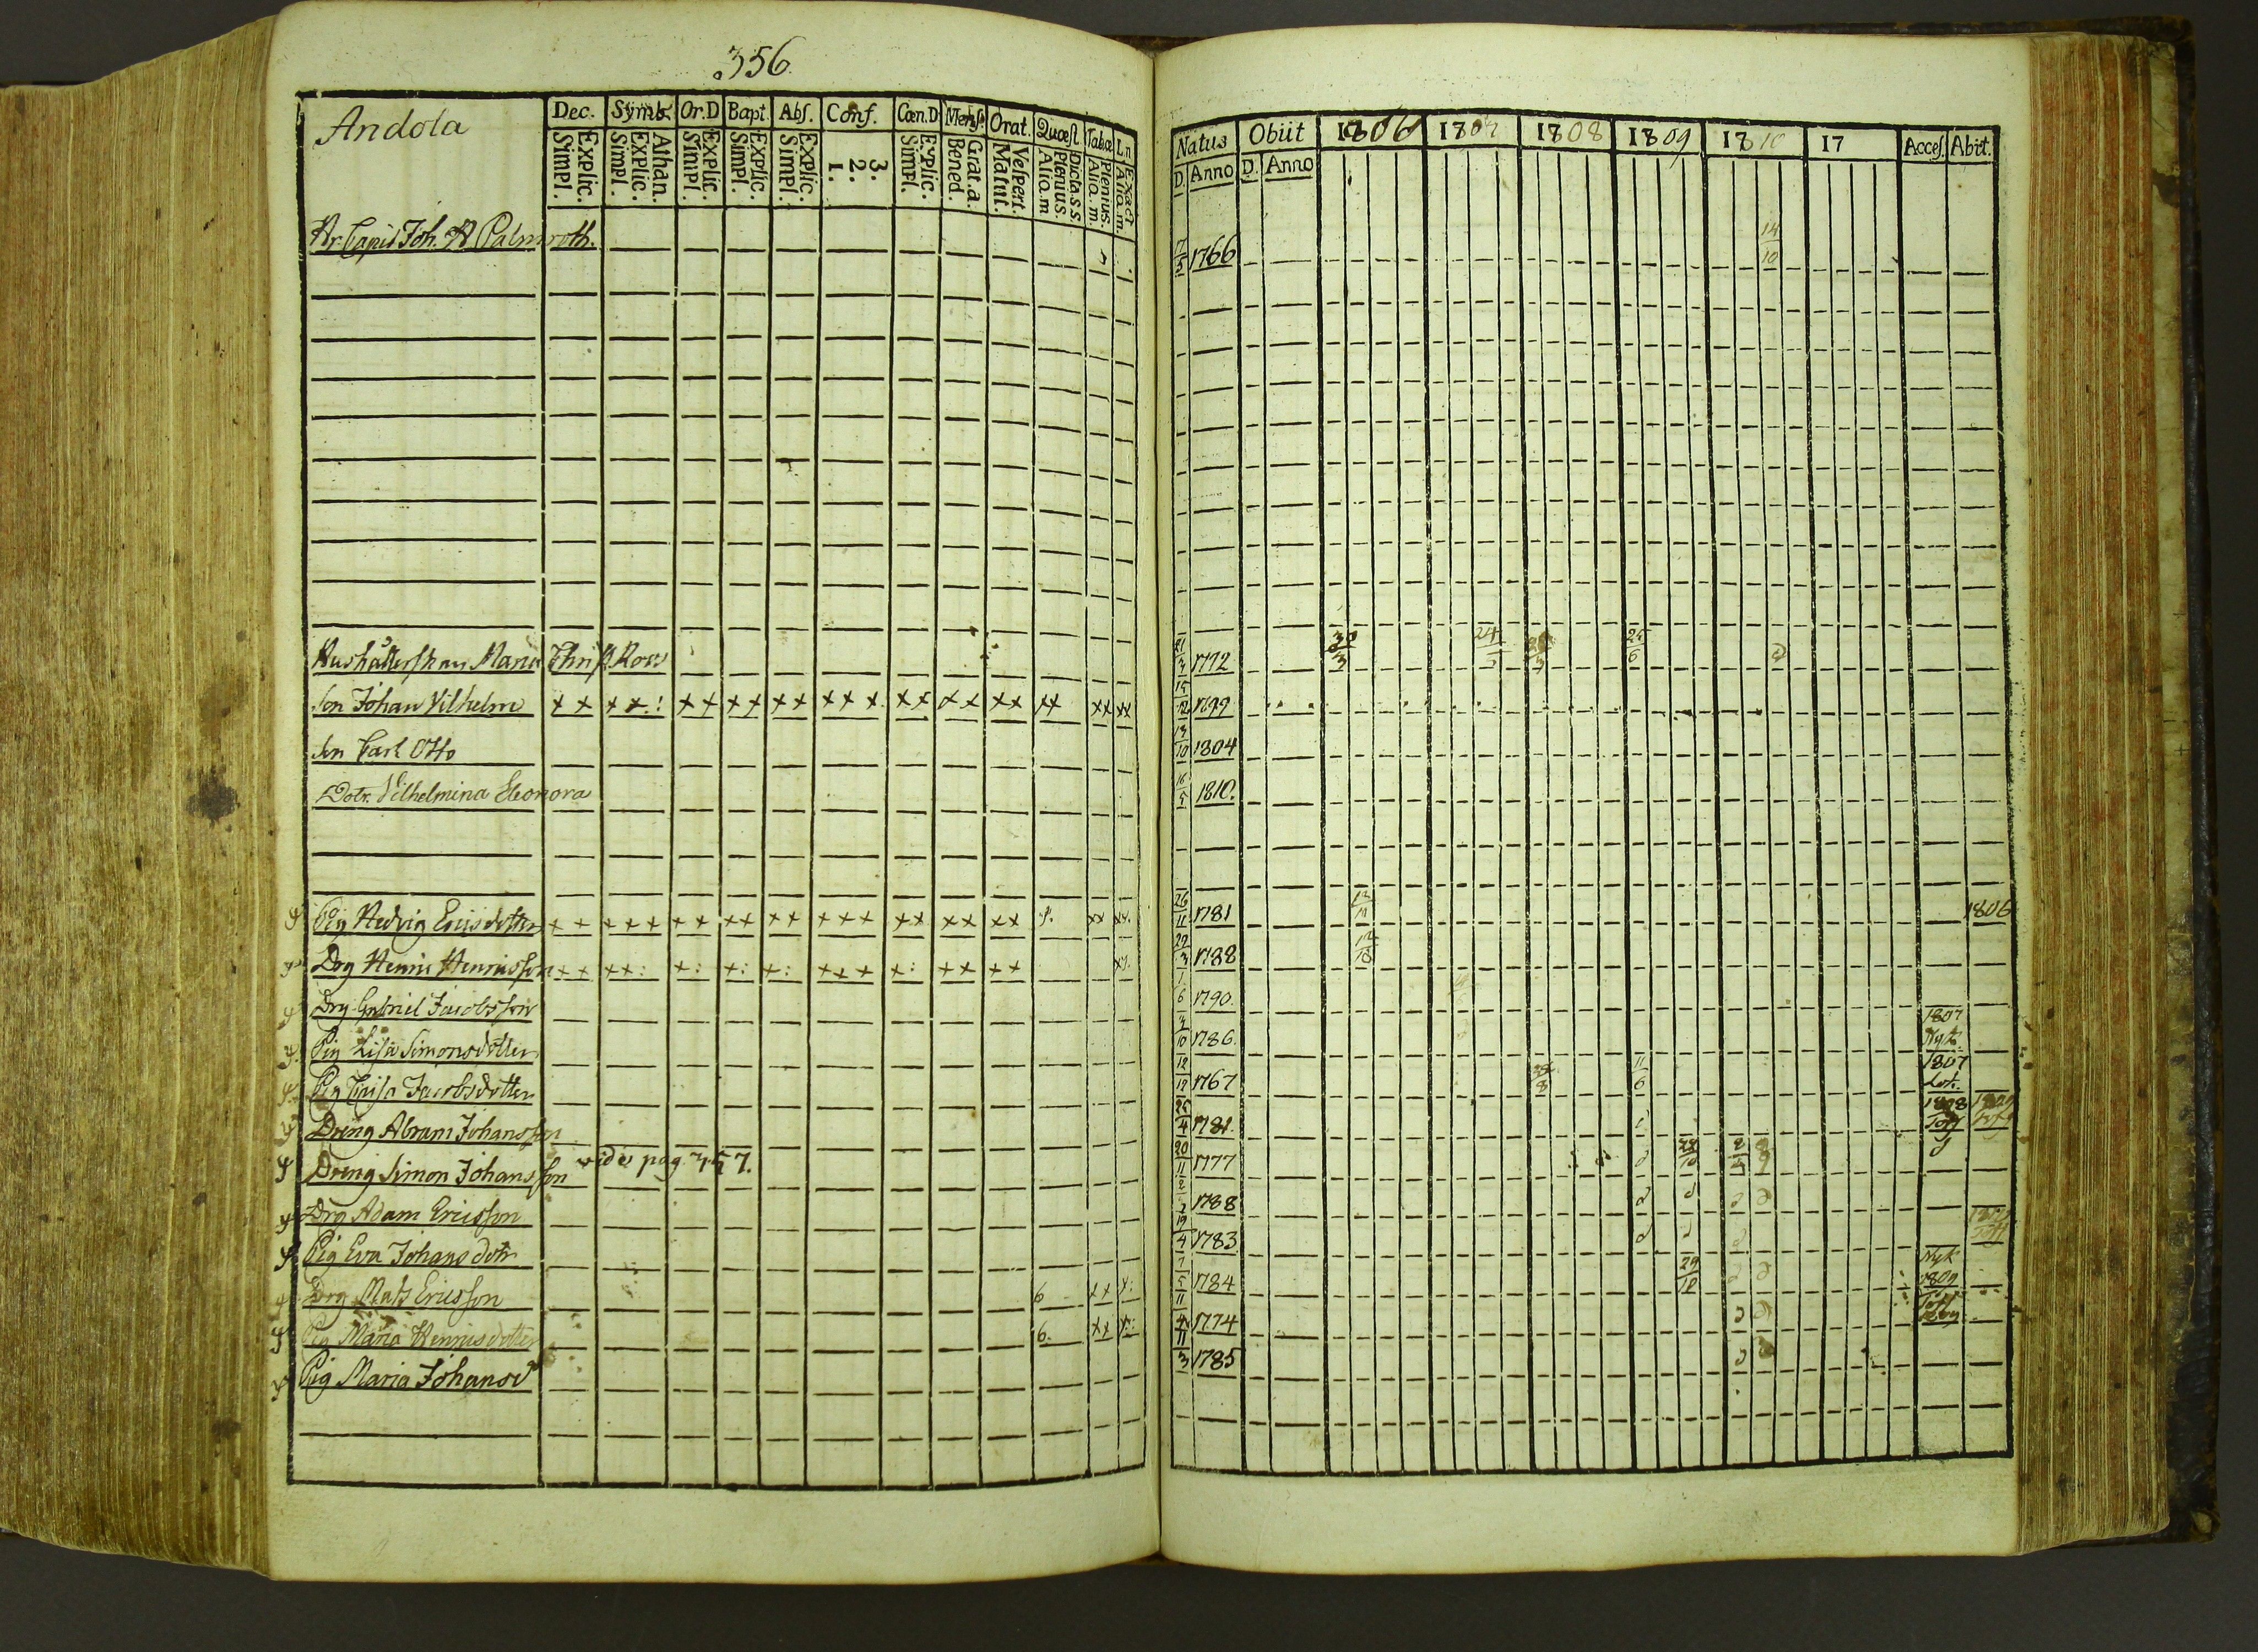 356
Andola Dec. Symb. Or.D Bapt. Abs. Conf. Cœn.D Mens. Orat. Quæst. Tabæ Ln
Explic. Simpl. Athan. Explic. Simpl. Explic. Simpl. Explic. Simpl. Explic. Simpl. 3. 2. 1. Explic. Simpl. Grat. a. Bened. Vespert. Matut. Dicta.s.s. Plenius. Alio.m. Plenius. Alio.m. Exact Alio.m.
Natus Obiit 1806 1807 1808 1809 1810 17 Acces. Abiit.
D. Anno D. Anno
Hr. Capit Joh. A Palmroth. 17/5 1766 14/10
Hushållerskan Maria Christ. Ross 21/3 1772 30/3 24/3 25/6
Son Johan Vilhelm ++ ++: ++ ++ ++ +++ ++ ++ ++ ++ ++ ++ 15/12 1799
Son Carl Otto 13/10 1804
Dotr. Vilhelmina Eleonora 16/5 1810.
Pig Hedvig Ericsdotter ++ +++ ++ ++ ++ +++ ++ ++ ++ ++ 26/11 1781 12/10 1806
Drg Henric Henricsson ++ ++: +: +: +: +++ +: ++ ++ 29/3 1788 12/10
Drg Gabriel Jacobsson 1/6 1790.
Pig Lisa Simonsdotter 4/10 1786. 1807
Pig Caisa Jacobsdotter 12/12 1767 11/6 1807
Dreng Abram Johansson 25/4 1781. 1808
Dreng Simon Johansson vide pag. 357. 20/11 1777
Drg Adam Ericsson 1788
Pig Eva Johansdotr 19/4 1783
Drg Mats Ericsson 6 ++ +: 7/5 1784 29/10 Nyk 1809
Pig Maria Henricsdotter 6. ++ +: 1774
Pig Maria Johansd 11/3 1785